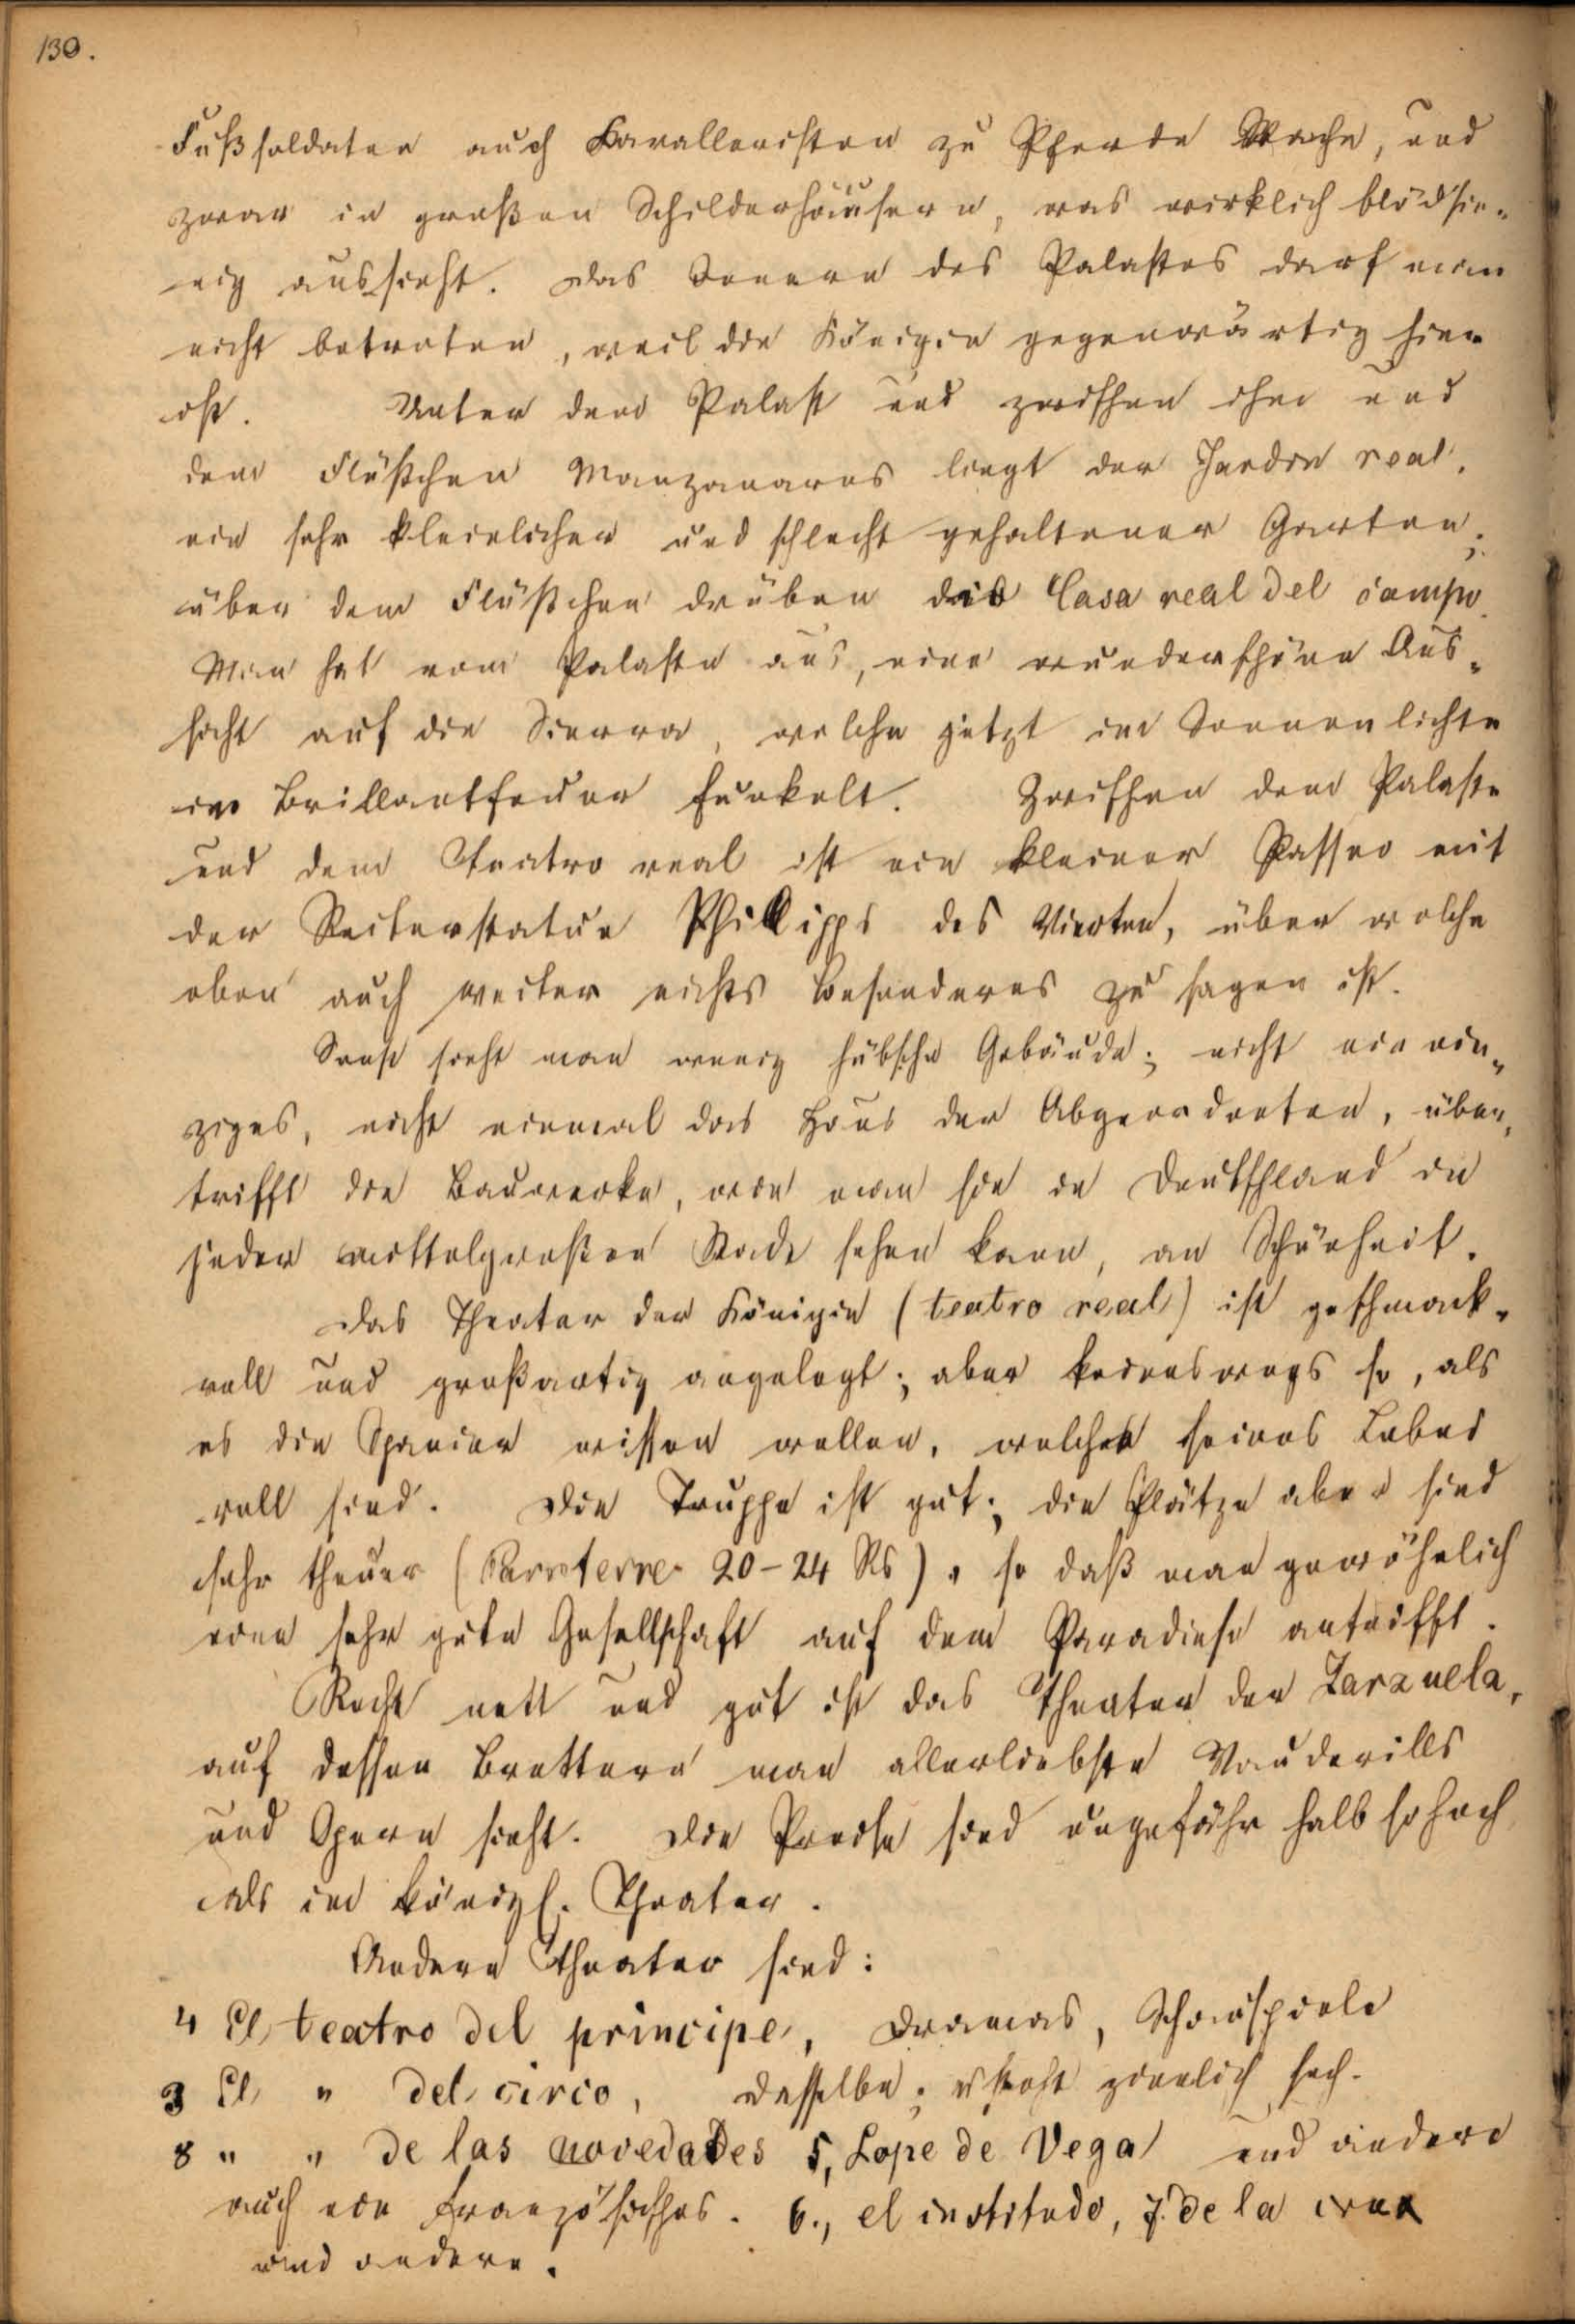 130.
Fußsoldaten auch Kavalleristen zu Pferde Wache, und
zwar in großen Schilderhäusern, was wirklich blödsin-
nig aussieht. Das Innere des Palastes darf man
nicht betreten, weil die Königin gegenwärtig hier
ist. Unter dem Palast und zwischen ihm und
dem Flüßchen Manzanares liegt der Jardin real,
ein sehr kleinlicher und schlecht gehaltener Garten;
über dem Flüßchen drüben die Casa real del campo.
Man hat vom Palaste aus, eine wunderschöne Aus-
sicht auf die Sierra, welche jetzt im Sonnenlichte
im Brillantfeuer funkelt. Zwischen dem Palaste
und dem Teatro real ist ein kleiner Passeo mit
der Reiterstatue Phillipps des Vierten, über welche
eben auch weiter nichts Besonderes zu sagen ist.
Sonst sieht man wenig hübsche Gebäude; nicht ein ein-
ziges, nicht einmal das Haus der Abgeordneten, über-
trifft die Bauwerke, wie man sie in Deutschland in
jeder mittelgroßen Stadt sehen kann, an Schönheit.
Das Theater der Königin (teatro real) ist geschmack-
voll und großartig angelegt; aber keineswegs so, als
es die Spanier wissen wollen, welche seines Lobes
voll sind. Die Truppe ist gut; die Plätze aber sind
sehr theuer (Parroterre 20-24 Rs), so daß man gewöhnlich
eine sehr gute Gesellschaft auf dem Paradiese antrifft.
Recht nett und gut ist das Theater der Zarzuela,
auf dessen Brettern man allerliebste Vaudevills
und Opern sieht. Die Preise sind ungefähr halb so hoch
als im königl. Theater.
Andere Theater sind:
4 El teatro del principe, Dramas, Schauspiele
3 El " del circo, dasselbe; es steht ziemlich hoch.
8 " " de las novedades 5, Lope de Vega und andere
auch ein französisches. 6., el institudo, 7. de la crux
und andere.